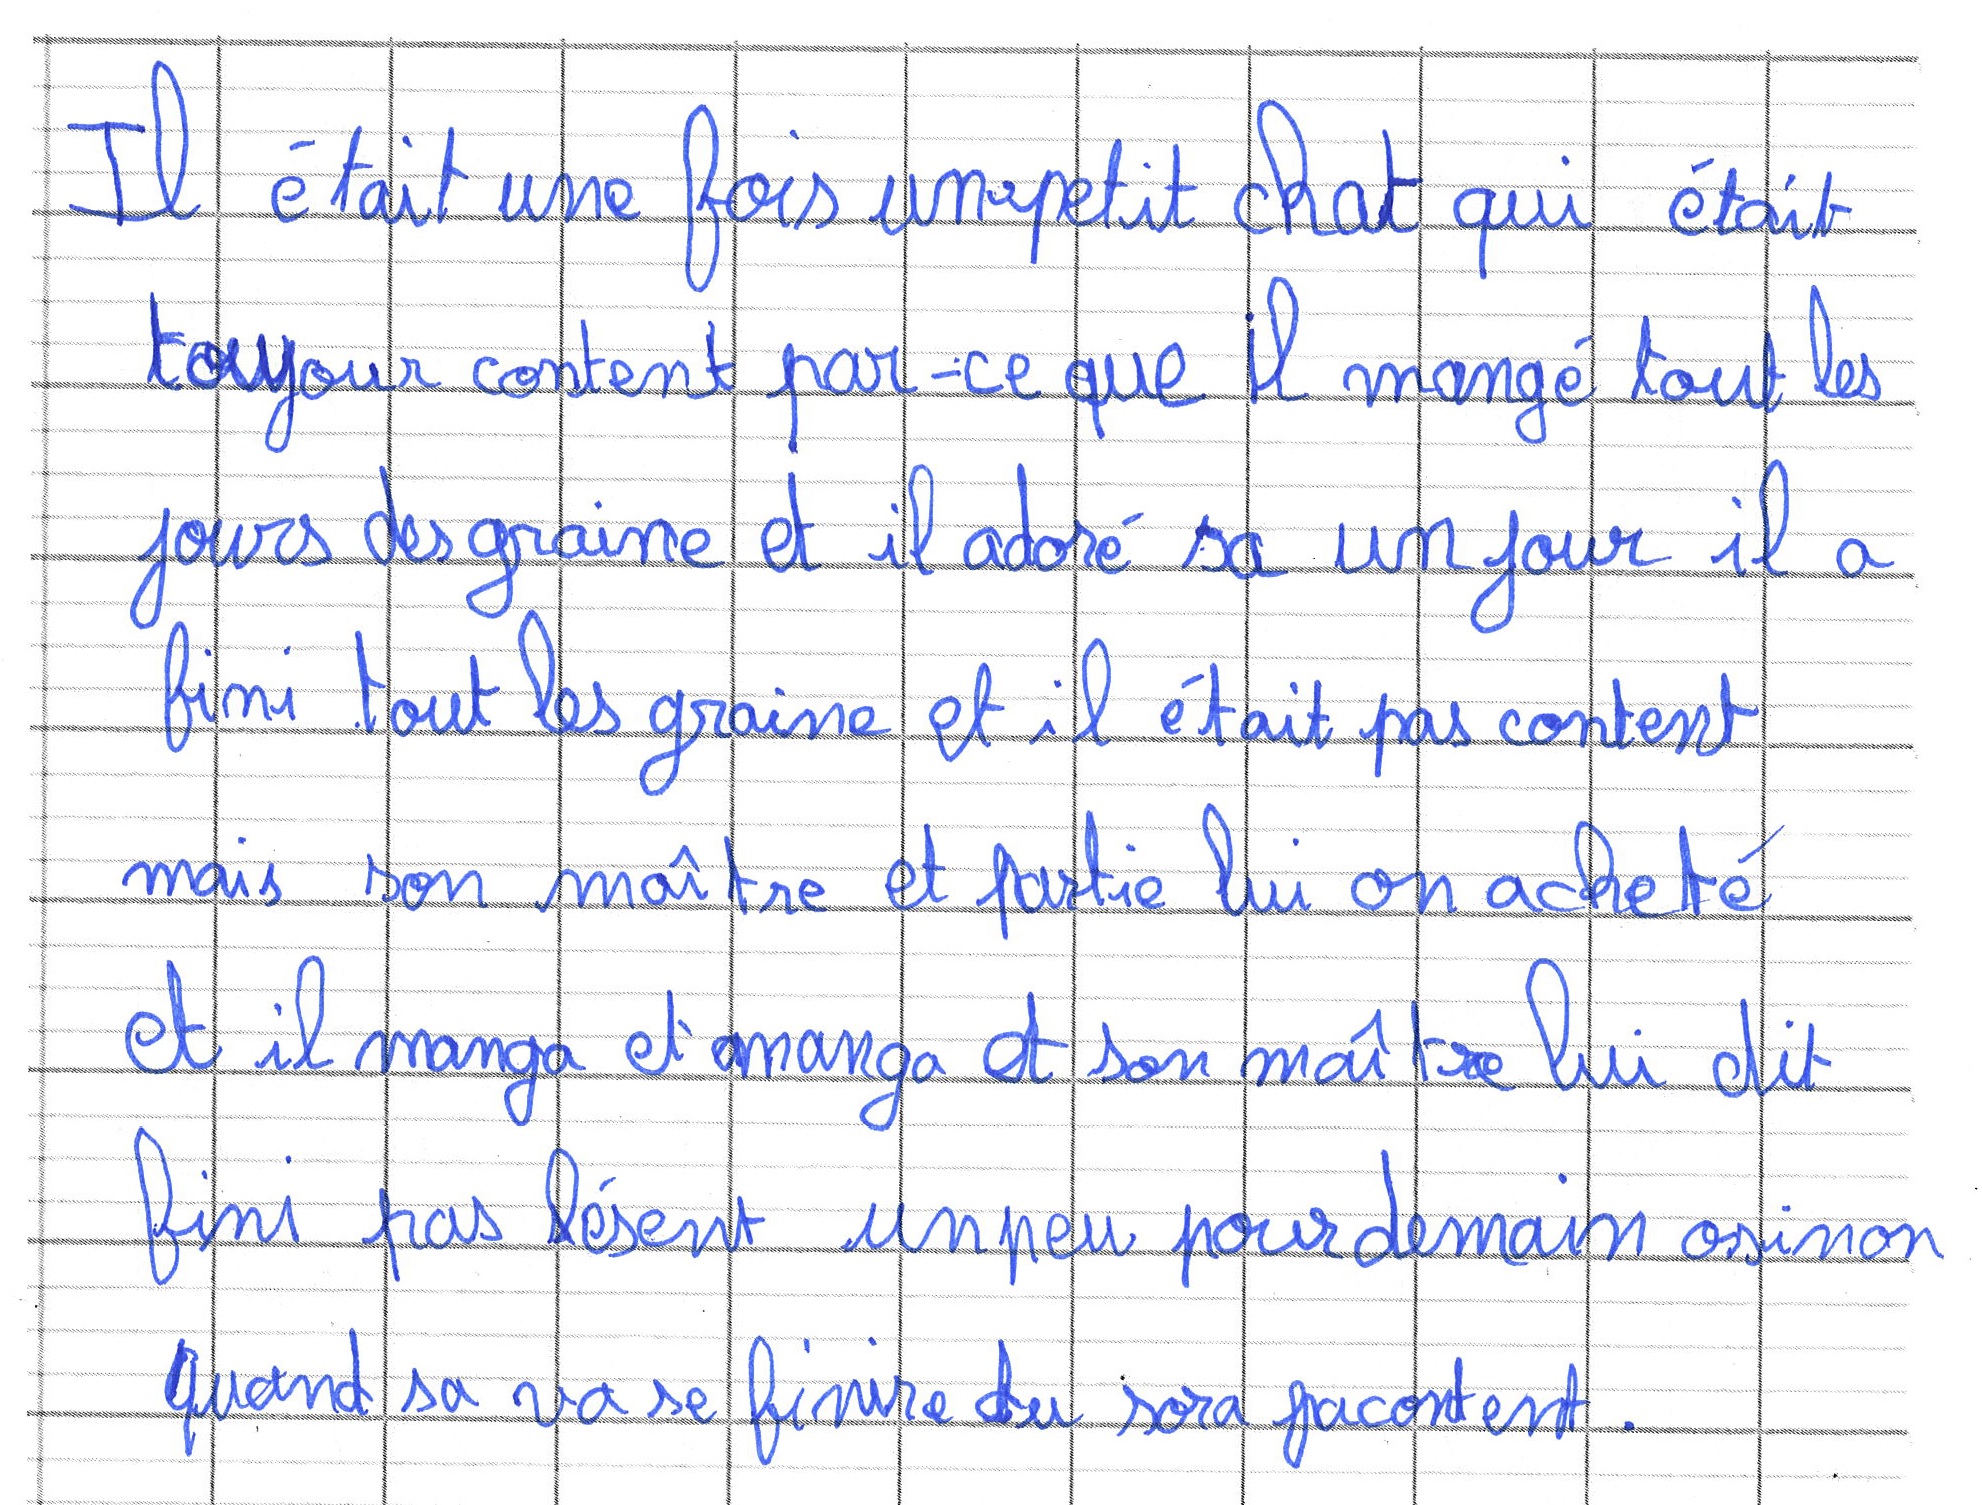 Il était une fois un petit chat qui était
toujour content par-ce que il mangé tout les
jours des graine et il adoré sa un jour il a
fini tout les graine et il était pas content
mais son maître et partie lui on acheté
et il manga et manga et son maître lui dit
fini pas lésent un peu pour demain osinon
quand sa va se finire tu sora pacontent.